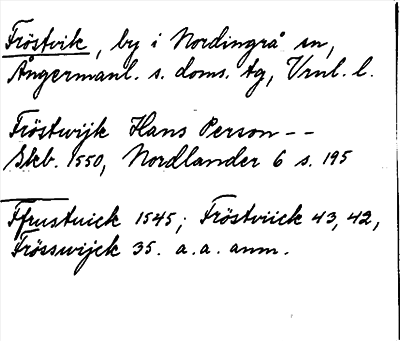 Fröstvik, by i Nordingrå sn,
Ångermanl. s. doms. tg, Vrnl. l.
Fröstwijk Hans Person--
Skb. 1550, Nordlander 6 s. 195
Ffrustuick 1545; Fröstviick 43, 42,
Frösswijck 35. a.a. anm.